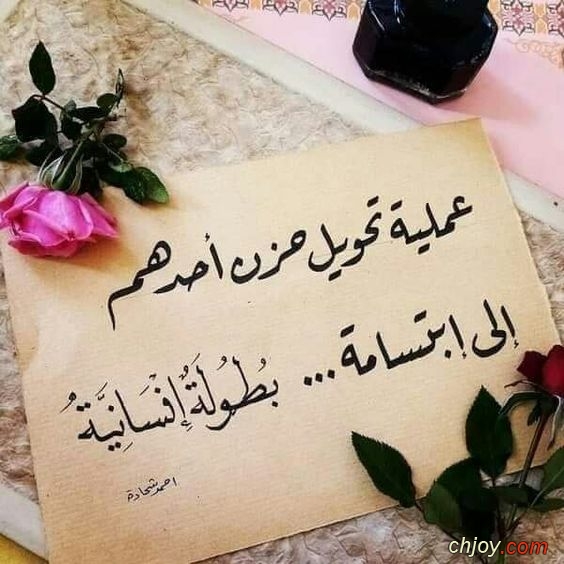 عملية تحويل حزن أحدهم
إلى إبتسامة... بُطُولَةٌ إِنْسَانِيَّةٌ
احمد شحادة
chjoy.com